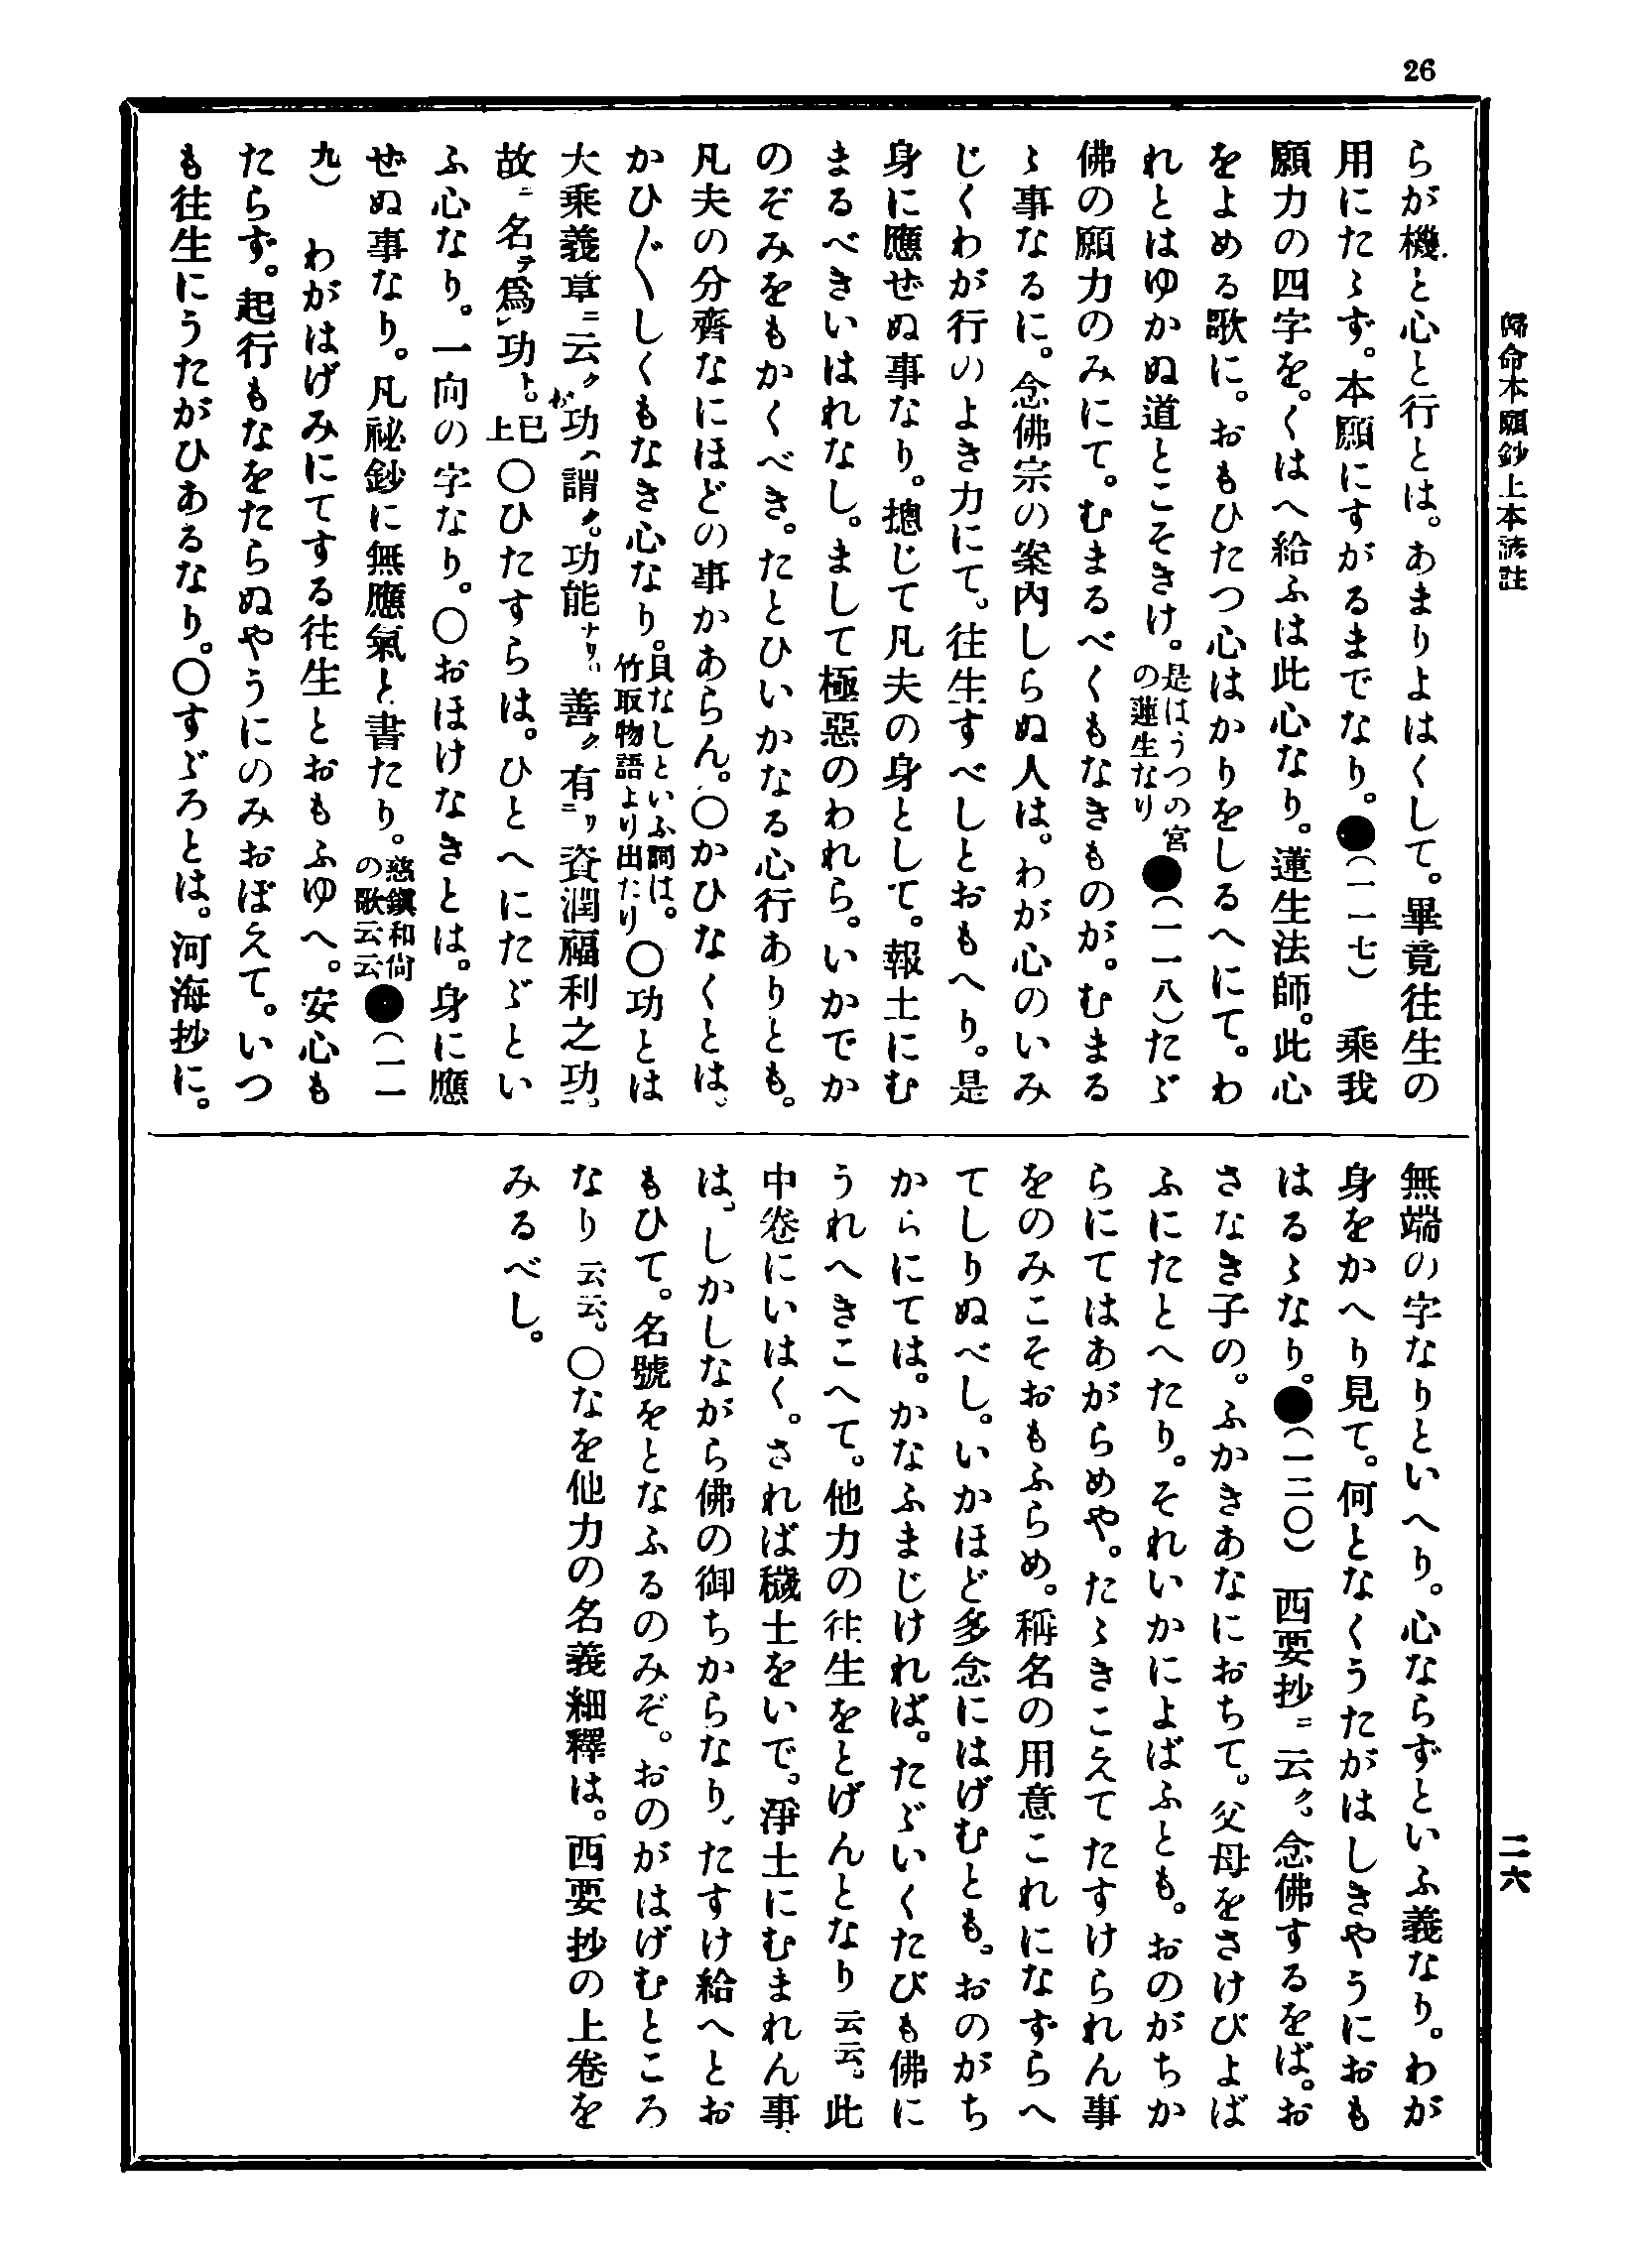 26
歸命本願鈔上本諺註
二六
らが機と心と行とは。あまりよはくして。畢竟往生の
用にたらず。本願にすがるまでなり。●(一一七)　乘我
願力の四字を。くはへ給ふは此心なり。蓮生法師。此心
をよめる歌に。おもひたつ心はかりをしるへにて。わ
れとはゆかぬ道とこそきけ。是はうつの宮の蓮生なり●(一一八)たゞ
佛の願力のみにて。むまるべくもなきものが。むまる
ゝ事なるに。念佛宗の案内しらぬ人は。わが心のいみ
じくわが行のよき力にて。往生すべしとおもへり。是
身に應ぜぬ事なり。摠じて凡夫の身として。報土にむ
まるべきいはれなし。まして極惡のわれら。いかでか
のぞみをもかくべき。たとひいかなる心行ありとも。
凡夫の分齊なにほどの事かあらん。〇かひなくとは、
かひ〲しくもなき心なり。貝なしといふ詞は。竹取物語より出たり〇功とは
大乘義章ニ云ク功ハ謂ク。功能ナリ。善ク有ニリ資潤福利之功
故ニ名テ爲功ト。已上〇ひたすらは。ひとへにたゞとい
ふ心なり。一向の字なり。〇おほけなきとは。身に應
ぜぬ事なり。凡祕鈔に無應氣と書たり。慈鎭和尙の歌云云●(一一
九)　わがはげみにてする往生とおもふゆへ。安心も
たらず。起行もなをたらぬやうにのみおぼえて。いつ
も往生にうたがひあるなり。〇すゞろとは。河海抄に。
無端の字なりといへり。心ならずといふ義なり。わが
身をかへり見て。何となくうたがはしきやうにおも
はるゝなり。●(一二〇)　西要抄ニ云ク。念佛するをば。お
さなき子の。ふかきあなにおちて。父母をさけびよば
ふにたとへたり。それいかによばふとも。おのがちか
らにてはあがらめや。たゝきこえてたすけられん事
をのみこそおもふらめ。稱名の用意これになずらへ
てしりぬべし。いかほど多念にはげむとも。おのがち
からにては。かなふまじければ。たゞいくたびも佛に
うれへきこへて。他力の往生をとげんとなり云云。此
中卷にいはく。されば穢土をいで。淨土にむまれん事
は、しかしながら佛の御ちからなり、たすけ給へとお
もひて。名號をとなふるのみぞ。おのがはげむところ
なり云云。〇なを他力の名義細釋は。西要抄の上卷を
みるべし。